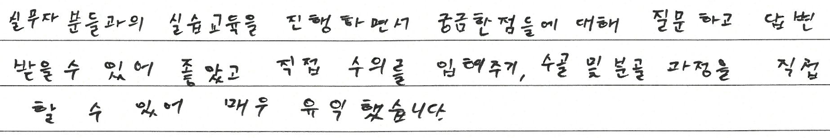 실무자 분들과의 실습교육을 진행하면서 궁금한점들에 대해 질문하고 답변
받을 수 있어 좋았고 직접 수의를 입혀주기, 수골 및 분골 과정을 직접
할 수 있어 매우 유익했습니다.